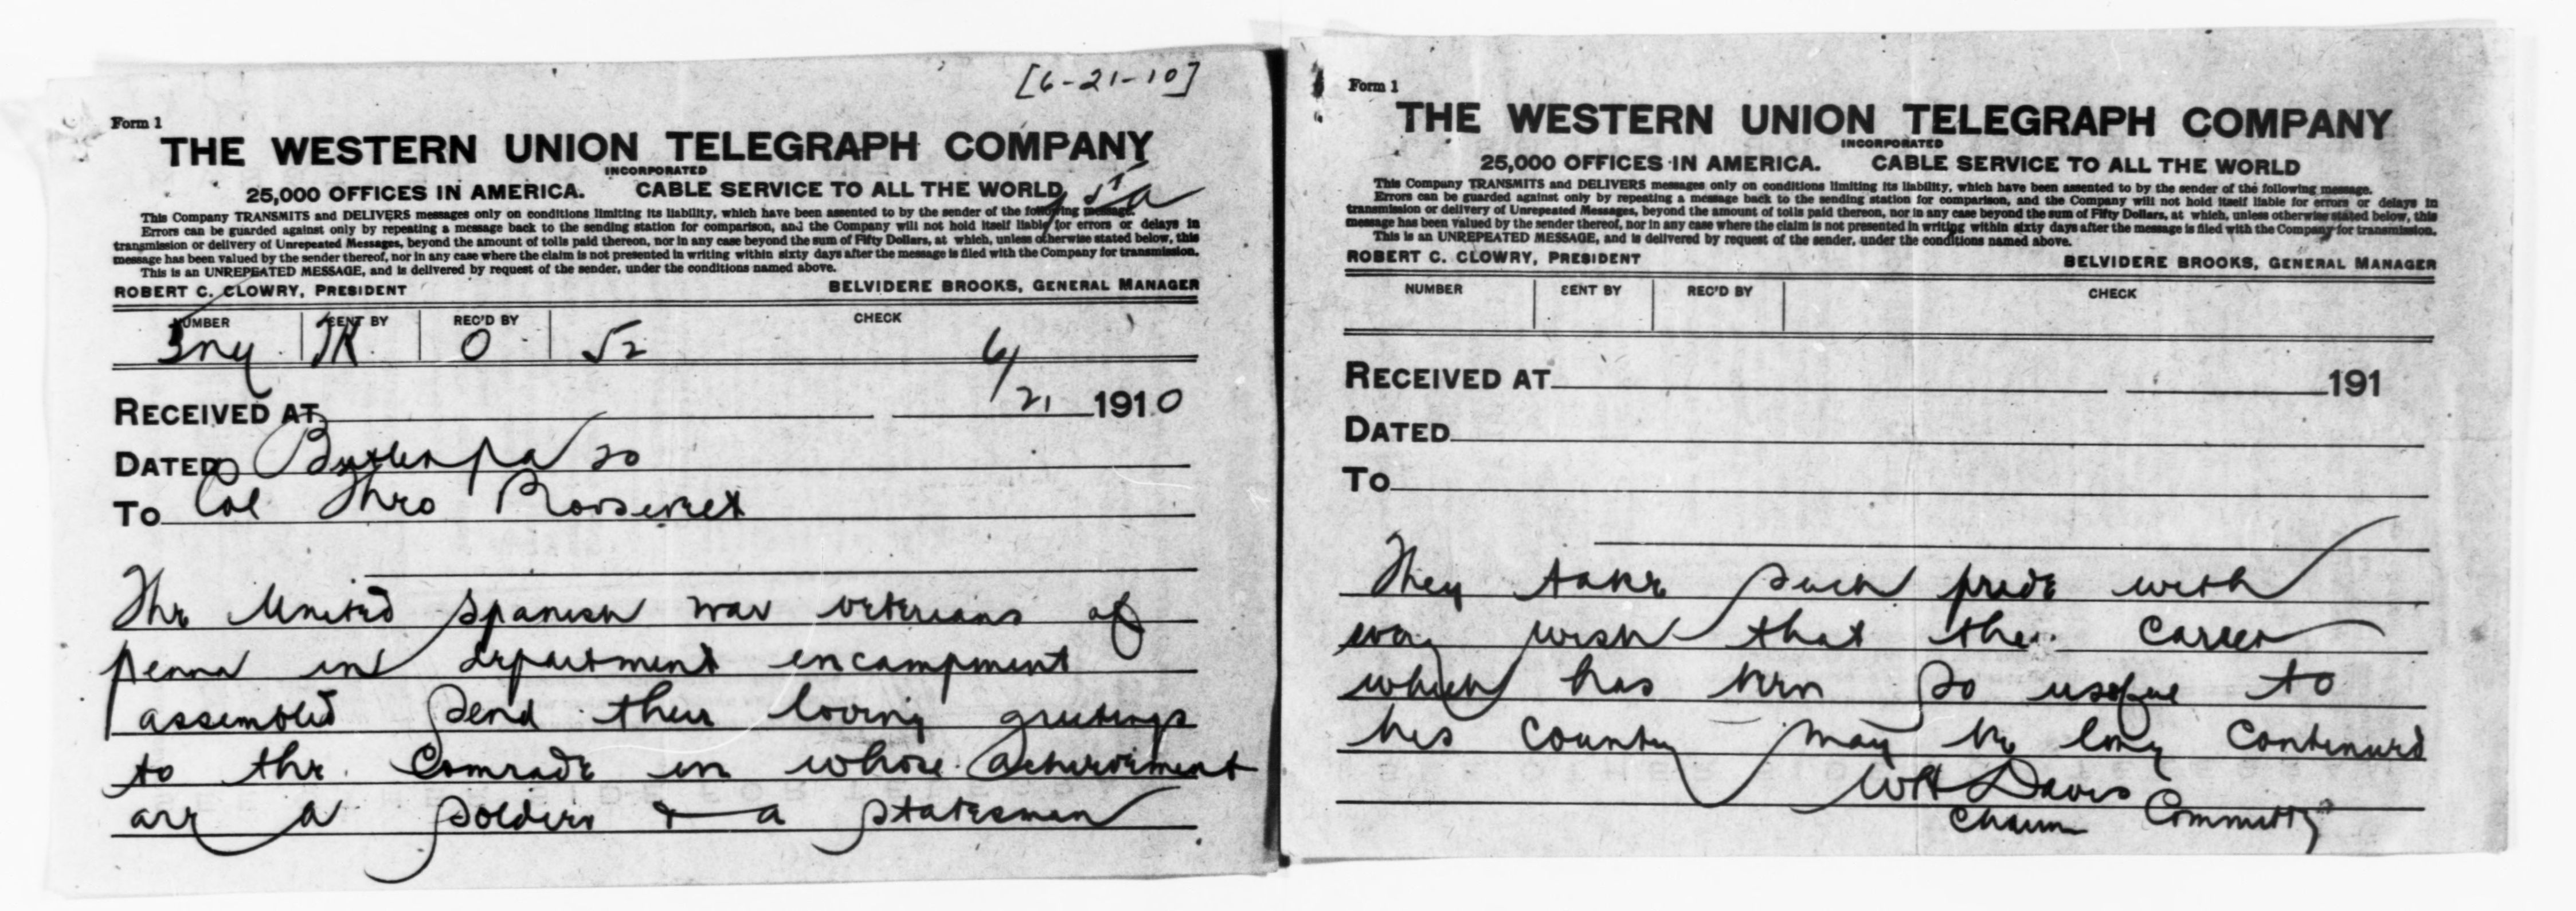 [6-21-10]
Form 1
THE WESTERN UNION TELEGRAPH COMPANY
INCORPORATED
25,000 OFFICES IN AMERICA. CABLE SERVICE TO ALL THE WORLD
This Company TRANSMITS and DELIVERS messages only on conditions limiting its liability, which have been assented to by the sender of the following message.
Errors can be guarded against only by repeating a message back to the sending station for comparison, and the Company will not hold itself liable for errors or delays in
transmission or delivery of Unrepeated Messages, beyond the amount of tolls paid thereon, nor in any case beyond the sum of Fifty Dollars, at which, unless otherwise stated below, this
message has been valued by the sender thereof, nor in any case where the claim is not presented in writing within sixty days after the message is filed with the Company for transmission.
This is an UNREPEATED MESSAGE, and is delivered by request of the sender, under the conditions named above.
ROBERT C. CLOWRY, PRESIDENT BELVIDERE BROOKS, GENERAL MANAGER
NUMBER SENT BY REC'D BY CHECK
3ny JK O 52
RECEIVED AT 6/21 1910
DATED Butler pa 20
To Col Theo Roosevelt
The United Spanish war veterans of
penna in department encampment
assembled send their loving greetings
to the Comrade in whose achievement
are a soldier & a statesman
Form 1
THE WESTERN UNION TELEGRAPH COMPANY
INCORPORATED
25,000 OFFICES IN AMERICA. CABLE SERVICE TO ALL THE WORLD
This Company TRANSMITS and DELIVERS messages only on conditions limiting its liability, which have been assented to by the sender of the following message.
Errors can be guarded against only by repeating a message back to the sending station for comparison, and the Company will not hold itself liable for errors or delays in
transmission or delivery of Unrepeated Messages, beyond the amount of tolls paid thereon, nor in any case beyond the sum of Fifty Dollars, at which, unless otherwise stated below, this
message has been valued by the sender thereof, nor in any case where the claim is not presented in writing within sixty days after the message is filed with the Company for transmission.
This is an UNREPEATED MESSAGE, and is delivered by request of the sender, under the conditions named above.
ROBERT C. CLOWRY, PRESIDENT BELVIDERE BROOKS, GENERAL MANAGER
NUMBER SENT BY REC'D BY CHECK
RECEIVED AT 191
DATED
To
They take such pride with
every wish that the career
which has been so useful to
his country may be long continued
WH Davis
Chairm Committee